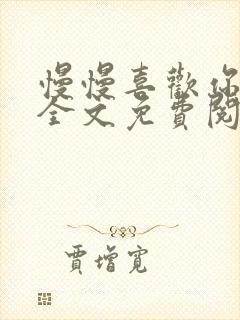 慢慢喜歡你
全文免費閱
賈增寬